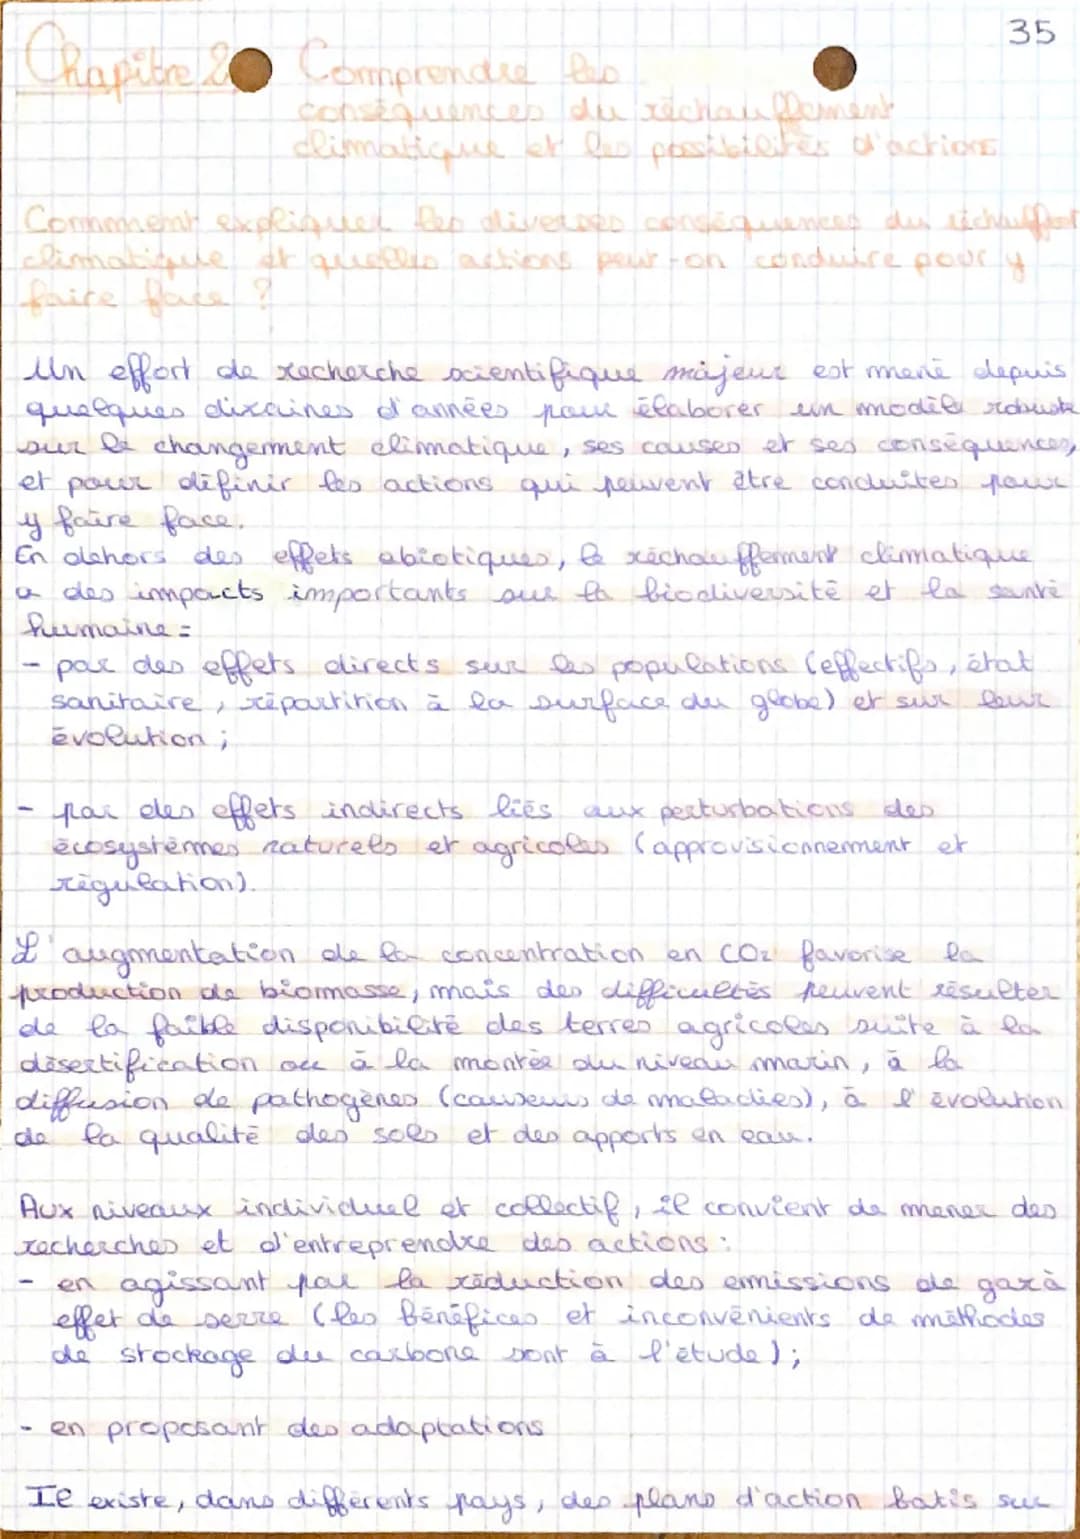 35
Chapitre 2 Comprendre les
conséquences du réchauffement
climatique et les possibilités d'actions
Commment expliquer les diverses conséquences du réchauffement
climatique et quelles actions peut-on conduire pour y
faire face ?
Un effort de recherche scientifique majeur est mené depuis
quelques dizaines d'années pour élaborer un modèle robuste
sur le changement climatique, ses causes et ses conséquences,
et pour définir les actions qui peuvent être conduites pour
y faire face.
En dehors des effets abiotiques, le réchauffement climatique
a des impacts importants sur la biodiversité et la santé
humaine :
- par des effets directs sur les populations (effectifs, état
sanitaire, répartition à la surface du globe) et sur leur
évolution ;
- par des effets indirects liés aux perturbations des
écosystèmes naturels et agricoles (approvisionnement et
régulation).
L'augmentation de la concentration en CO2 favorise la
production de biomasse, mais des difficultés peuvent résulter
de la faible disponibilité des terres agricoles suite à la
désertification ou à la montée du niveau marin, à la
diffusion de pathogènes (causeurs de maladies), à l'évolution
de la qualité des sols et des apports en eau.
Aux niveaux individuel et collectif, il convient de mener des
recherches et d'entreprendre des actions :
- en agissant par la réduction des émissions de gaz à
effet de serre (les bénéfices et inconvénients de méthodes
de stockage du carbone sont à l'étude) ;
- en proposant des adaptations
Il existe, dans différents pays, des plans d'action batis sur